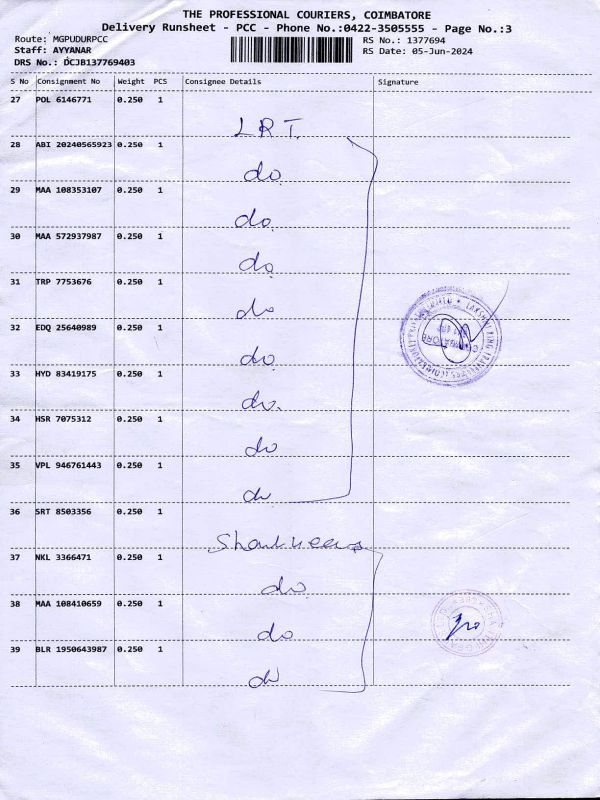 THE PROFESSIONAL COURIERS, COIMBATORE
Delivery Runsheet - PCC - Phone No.:0422-3505555 - Page No.:3
Route: MGPUDURPCC RS No.: 1377694
Staff: AYYANAR RS Date: 05-Jun-2024
DRS No.: DCJB137769403
S No Consignment No Weight PCS Consignee Details Signature
27 POL 6146771 0.250 1
LRT.
28 ABI 20240565923 0.250 1
do
29 MAA 108353107 0.250 1
do
30 MAA 572937987 0.250 1
do
31 TRP 7753676 0.250 1
do
32 EDQ 25640989 0.250 1
do
33 HYD 83419175 0.250 1
do
34 HSR 7075312 0.250 1
do
35 VPL 946761443 0.250 1
do
36 SRT 8503356 0.250 1
37 NKL 3366471 0.250 1
do
38 MAA 108410659 0.250 1
do
39 BLR 1950643987 0.250 1
do